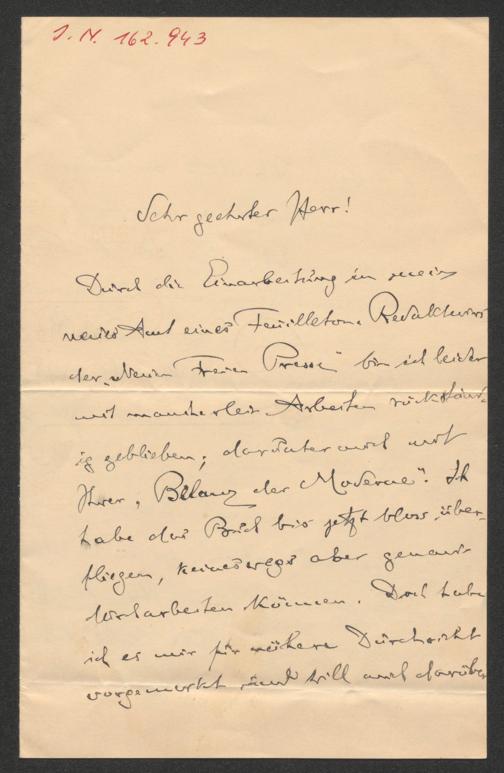 J. N. 162.943
Sehr geehrter Herr!
Durch die Einarbeitung in mein
neues Amt eines Feuilleton-Redakteurs
der „Neuen Freien Presse" bin ich leider
mit mancherlei Arbeiten rückständ-
ig geblieben; darunter auch mit
Ihrer „Bilanz der Moderne". Ich
habe das Buch bis jetzt bloss über-
fliegen, keineswegs aber genau
können. Doch habe
ich es mir für nähere Durchsicht
vorgemerkt und will auch darüber